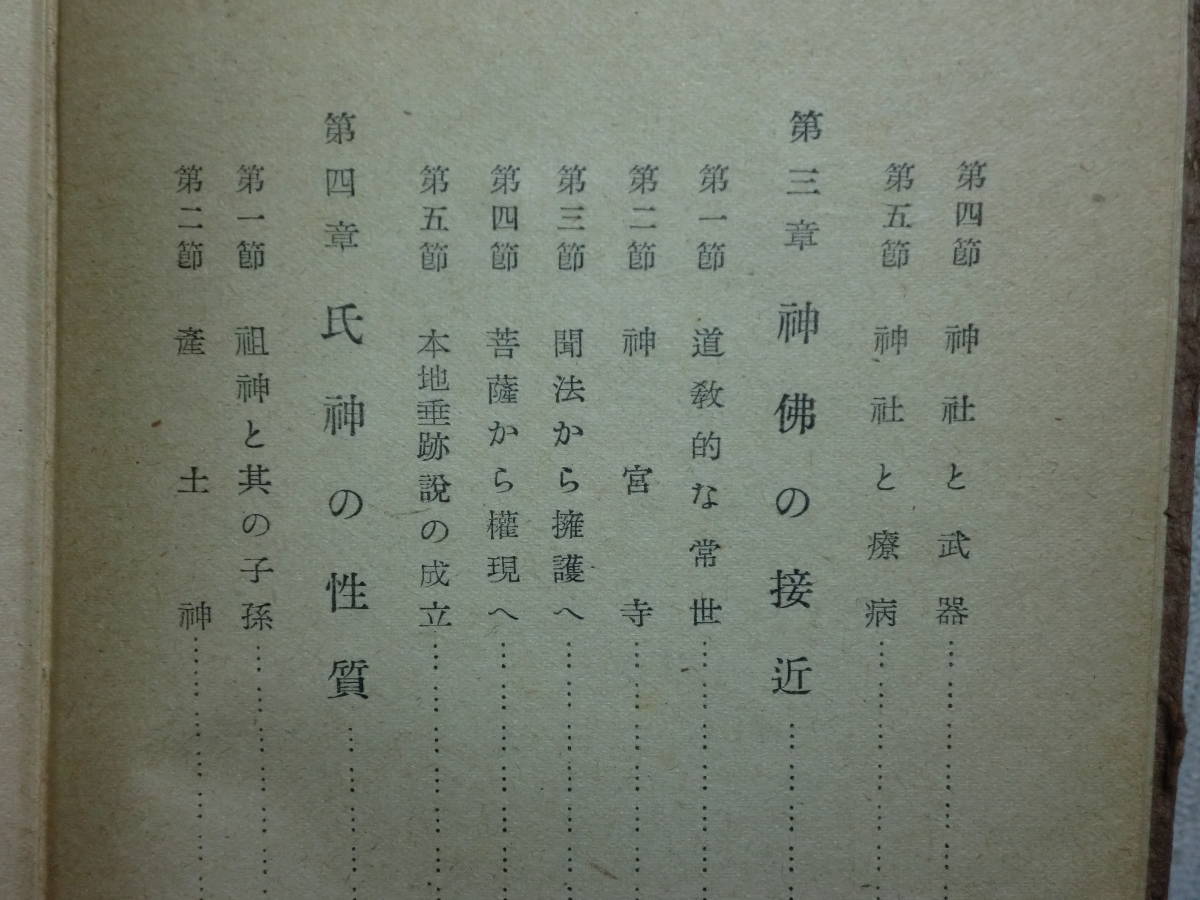 第四節 神社と武器
第五節 神社と療病
第三章 神佛の接近
第一節 道教的な常世
第二節 神宮寺
第三節 聞法から擁護へ
第四節 菩薩から權現へ
第五節 本地垂跡說の成立
第四章 氏神の性質
第一節 祖神と其の子孫
第二節 產土神